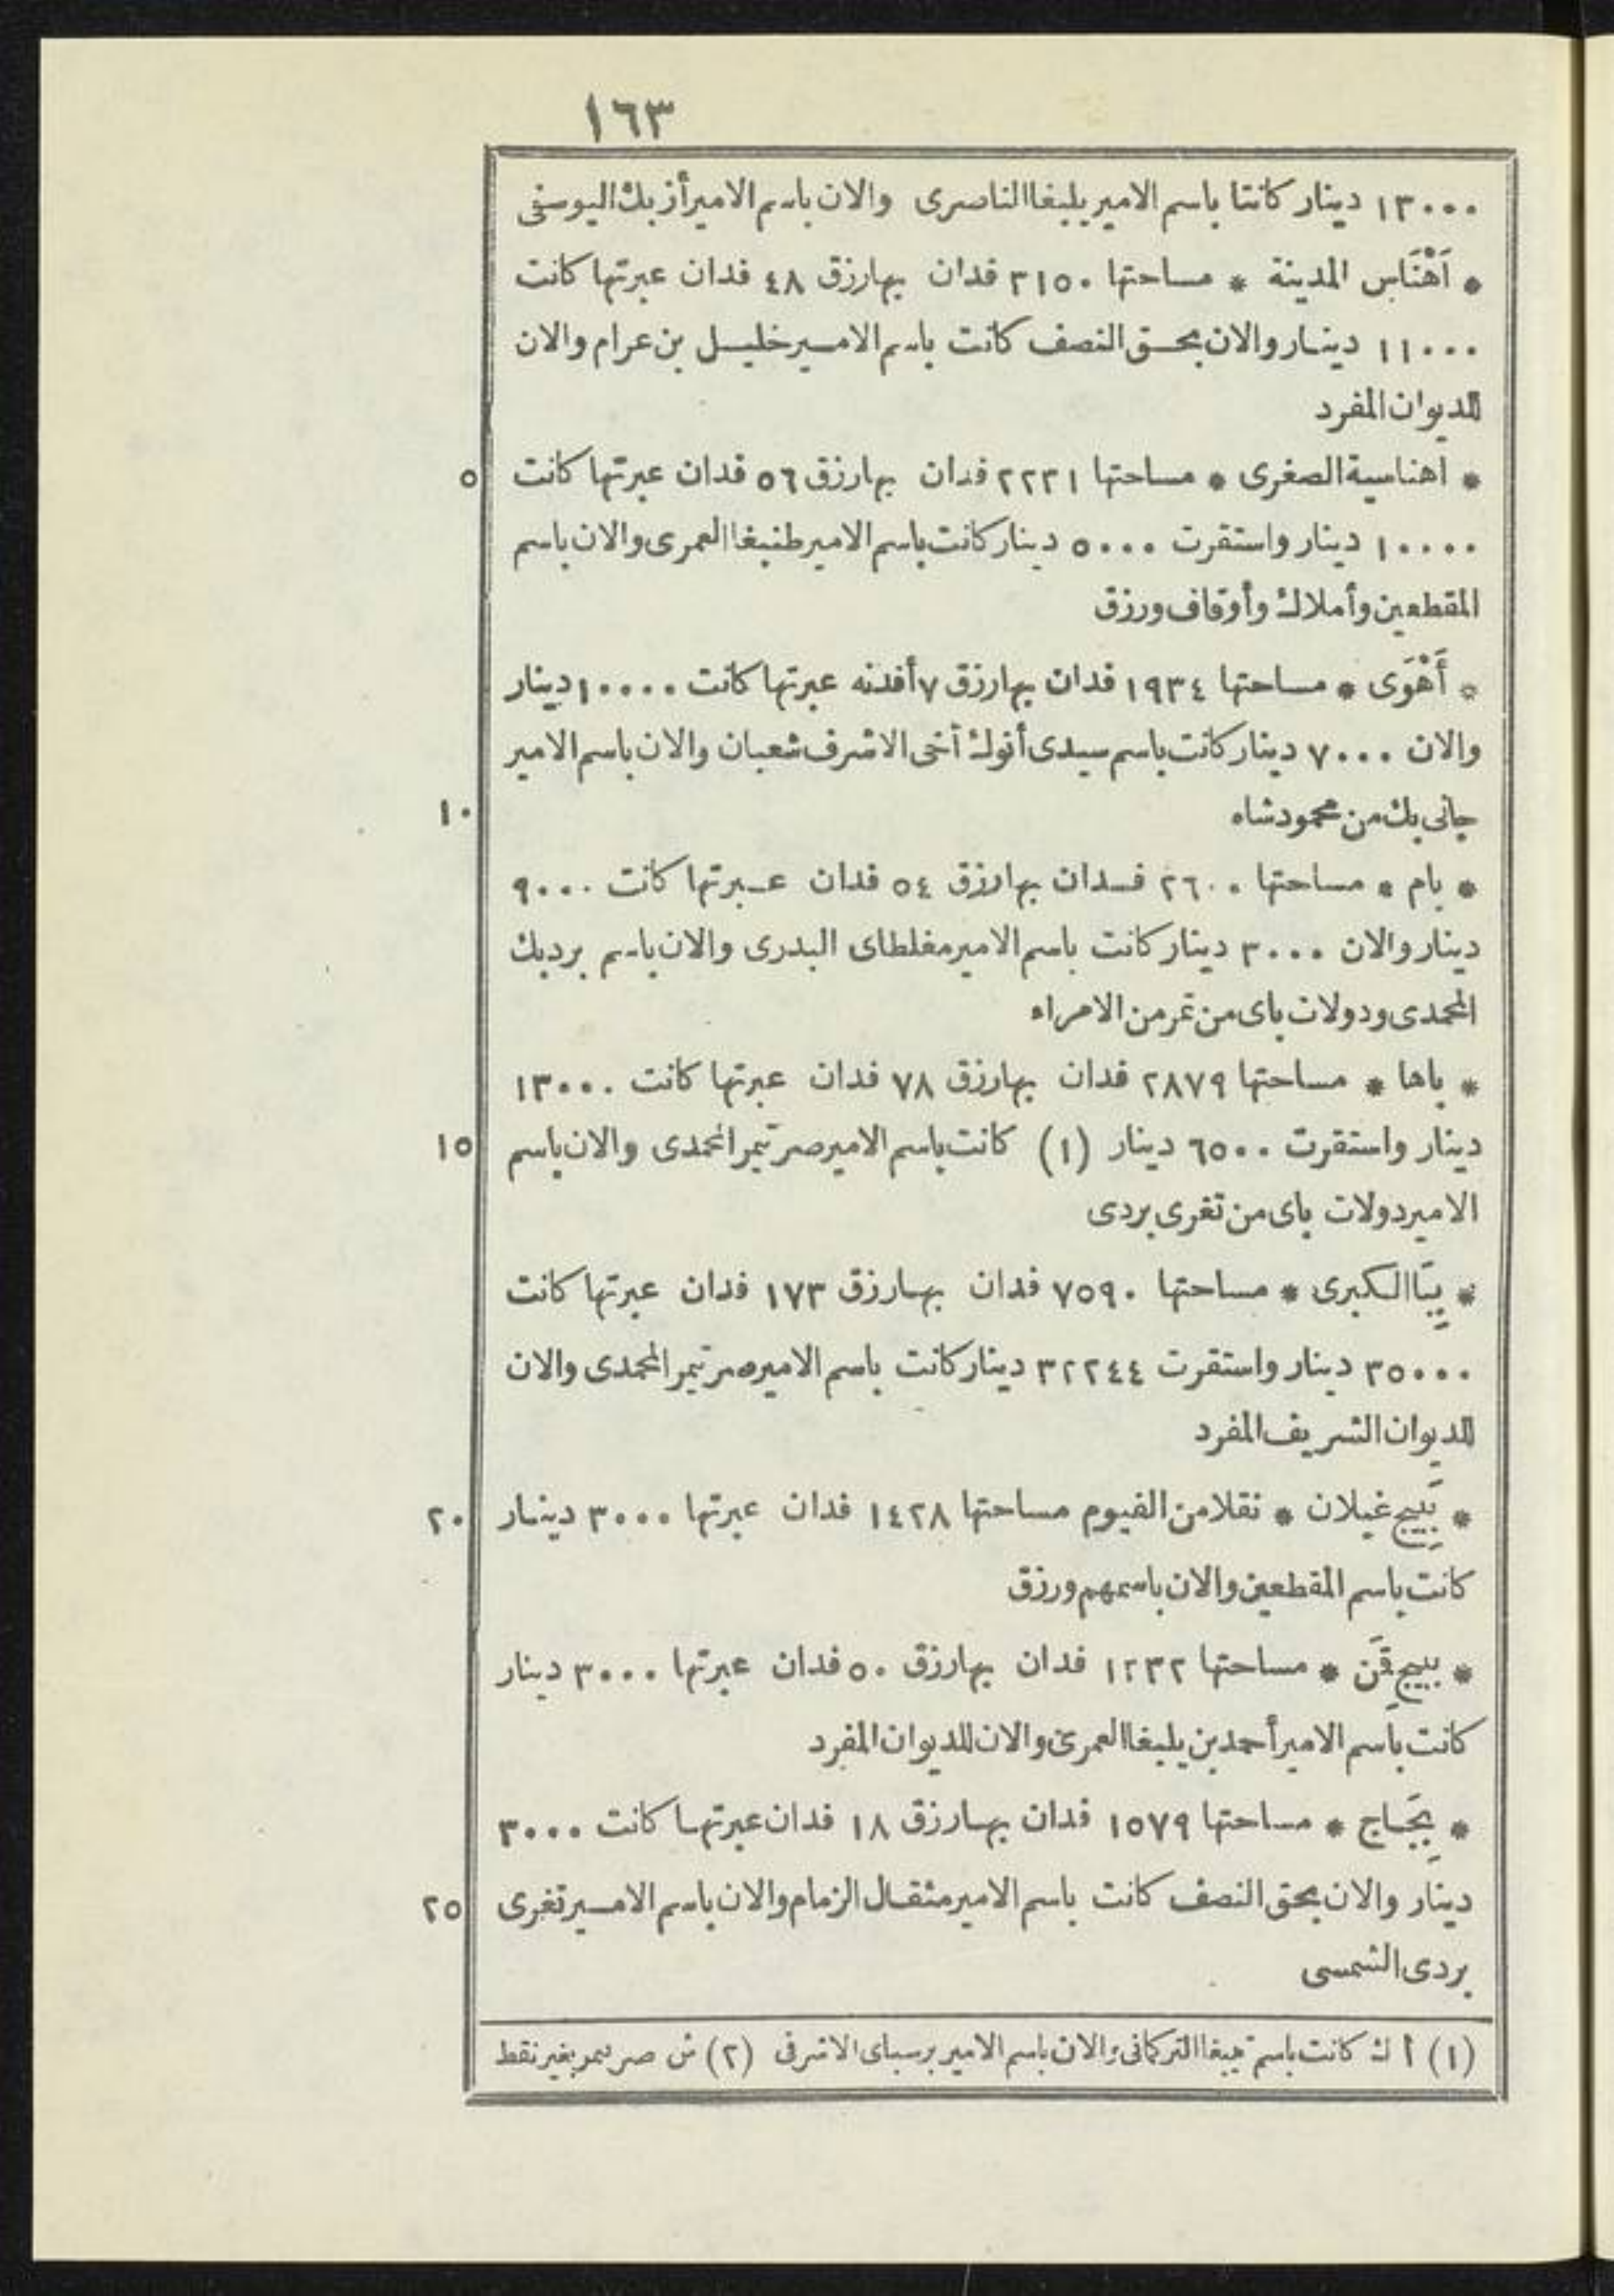 ١٦٣
١٣٠٠٠ دينار كانتا باسم الامير يلبغا الناصرى والان باسم الامير أزبك اليوسفى
* اَهْنَاس المدينة * مساحتها ٣١٥٠ فدان بها رزق ٤٨ فدان عبرتها كانت
١١٠٠٠ دينار والان بحق النصف كانت باسم الامير خليل بن عرام والان
للديوان المفرد
* اهناسية الصغرى * مساحتها ٢٢٣١ فدان بها رزق ٥٦ فدان عبرتها كانت ٥
١٠٠٠٠ دينار واستقرت ٥٠٠٠ دينار كانت باسم الامير طنبغا العمرى والان باسم
المقطعين وأملاك وأوقاف ورزق
* أَهْوَى * مساحتها ١٩٣٤ فدان بها رزق ٧ أفدنه عبرتها كانت ١٠٠٠٠ دينار
والان ٧٠٠٠ دينار كانت باسم سيدى أنوك أخى الاشرف شعبان والان باسم الامير
جانى بك من محمود شاه ١٠
* بام * مساحتها ٢٦٠٠ فدان بها رزق ٥٤ فدان عبرتها كانت ٩٠٠٠
دينار والان ٣٠٠٠ دينار كانت باسم الامير مغلطاى البدرى والان باسم بردبك
المحمدى ودولات باى من تمر من الامراء
* باها * مساحتها ٢٨٧٩ فدان بها رزق ٧٨ فدان عبرتها كانت ١٣٠٠٠
دينار واستقرت ٦٥٠٠ دينار (١) كانت باسم الامير صرتيمر المحمدى والان باسم ١٥
الامير دولات باى من تغرى بردى
* بِبَّا الكبرى * مساحتها ٧٥٩٠ فدان بها رزق ١٧٣ فدان عبرتها كانت
٣٥٠٠٠ دينار واستقرت ٣٢٢٤٤ دينار كانت باسم الامير صرتيمر المحمدى والان
للديوان الشريف المفرد
* بَبِيج غيلان * نقلا من الفيوم مساحتها ١٤٢٨ فدان عبرتها ٣٠٠٠ دينار ٢٠
كانت باسم المقطعين والان باسمهم ورزق
* ببيج قِمَن * مساحتها ١٢٣٢ فدان بها رزق ٥٠ فدان عبرتها ٣٠٠٠ دينار
كانت باسم الامير أحمد بن يلبغا العمرى والان للديوان المفرد
* بِجَاج * مساحتها ١٥٧٩ فدان بها رزق ١٨ فدان عبرتها كانت ٣٠٠٠
دينار والان بحق النصف كانت باسم الامير مثقال الزمام والان باسم الامير تغرى ٢٥
بردى الشمسى
(١) أ ك كانت باسم تمبغا التركمانى والان باسم الامير برسباى الاشرفى (٢) ش صر سمر بغير نقط